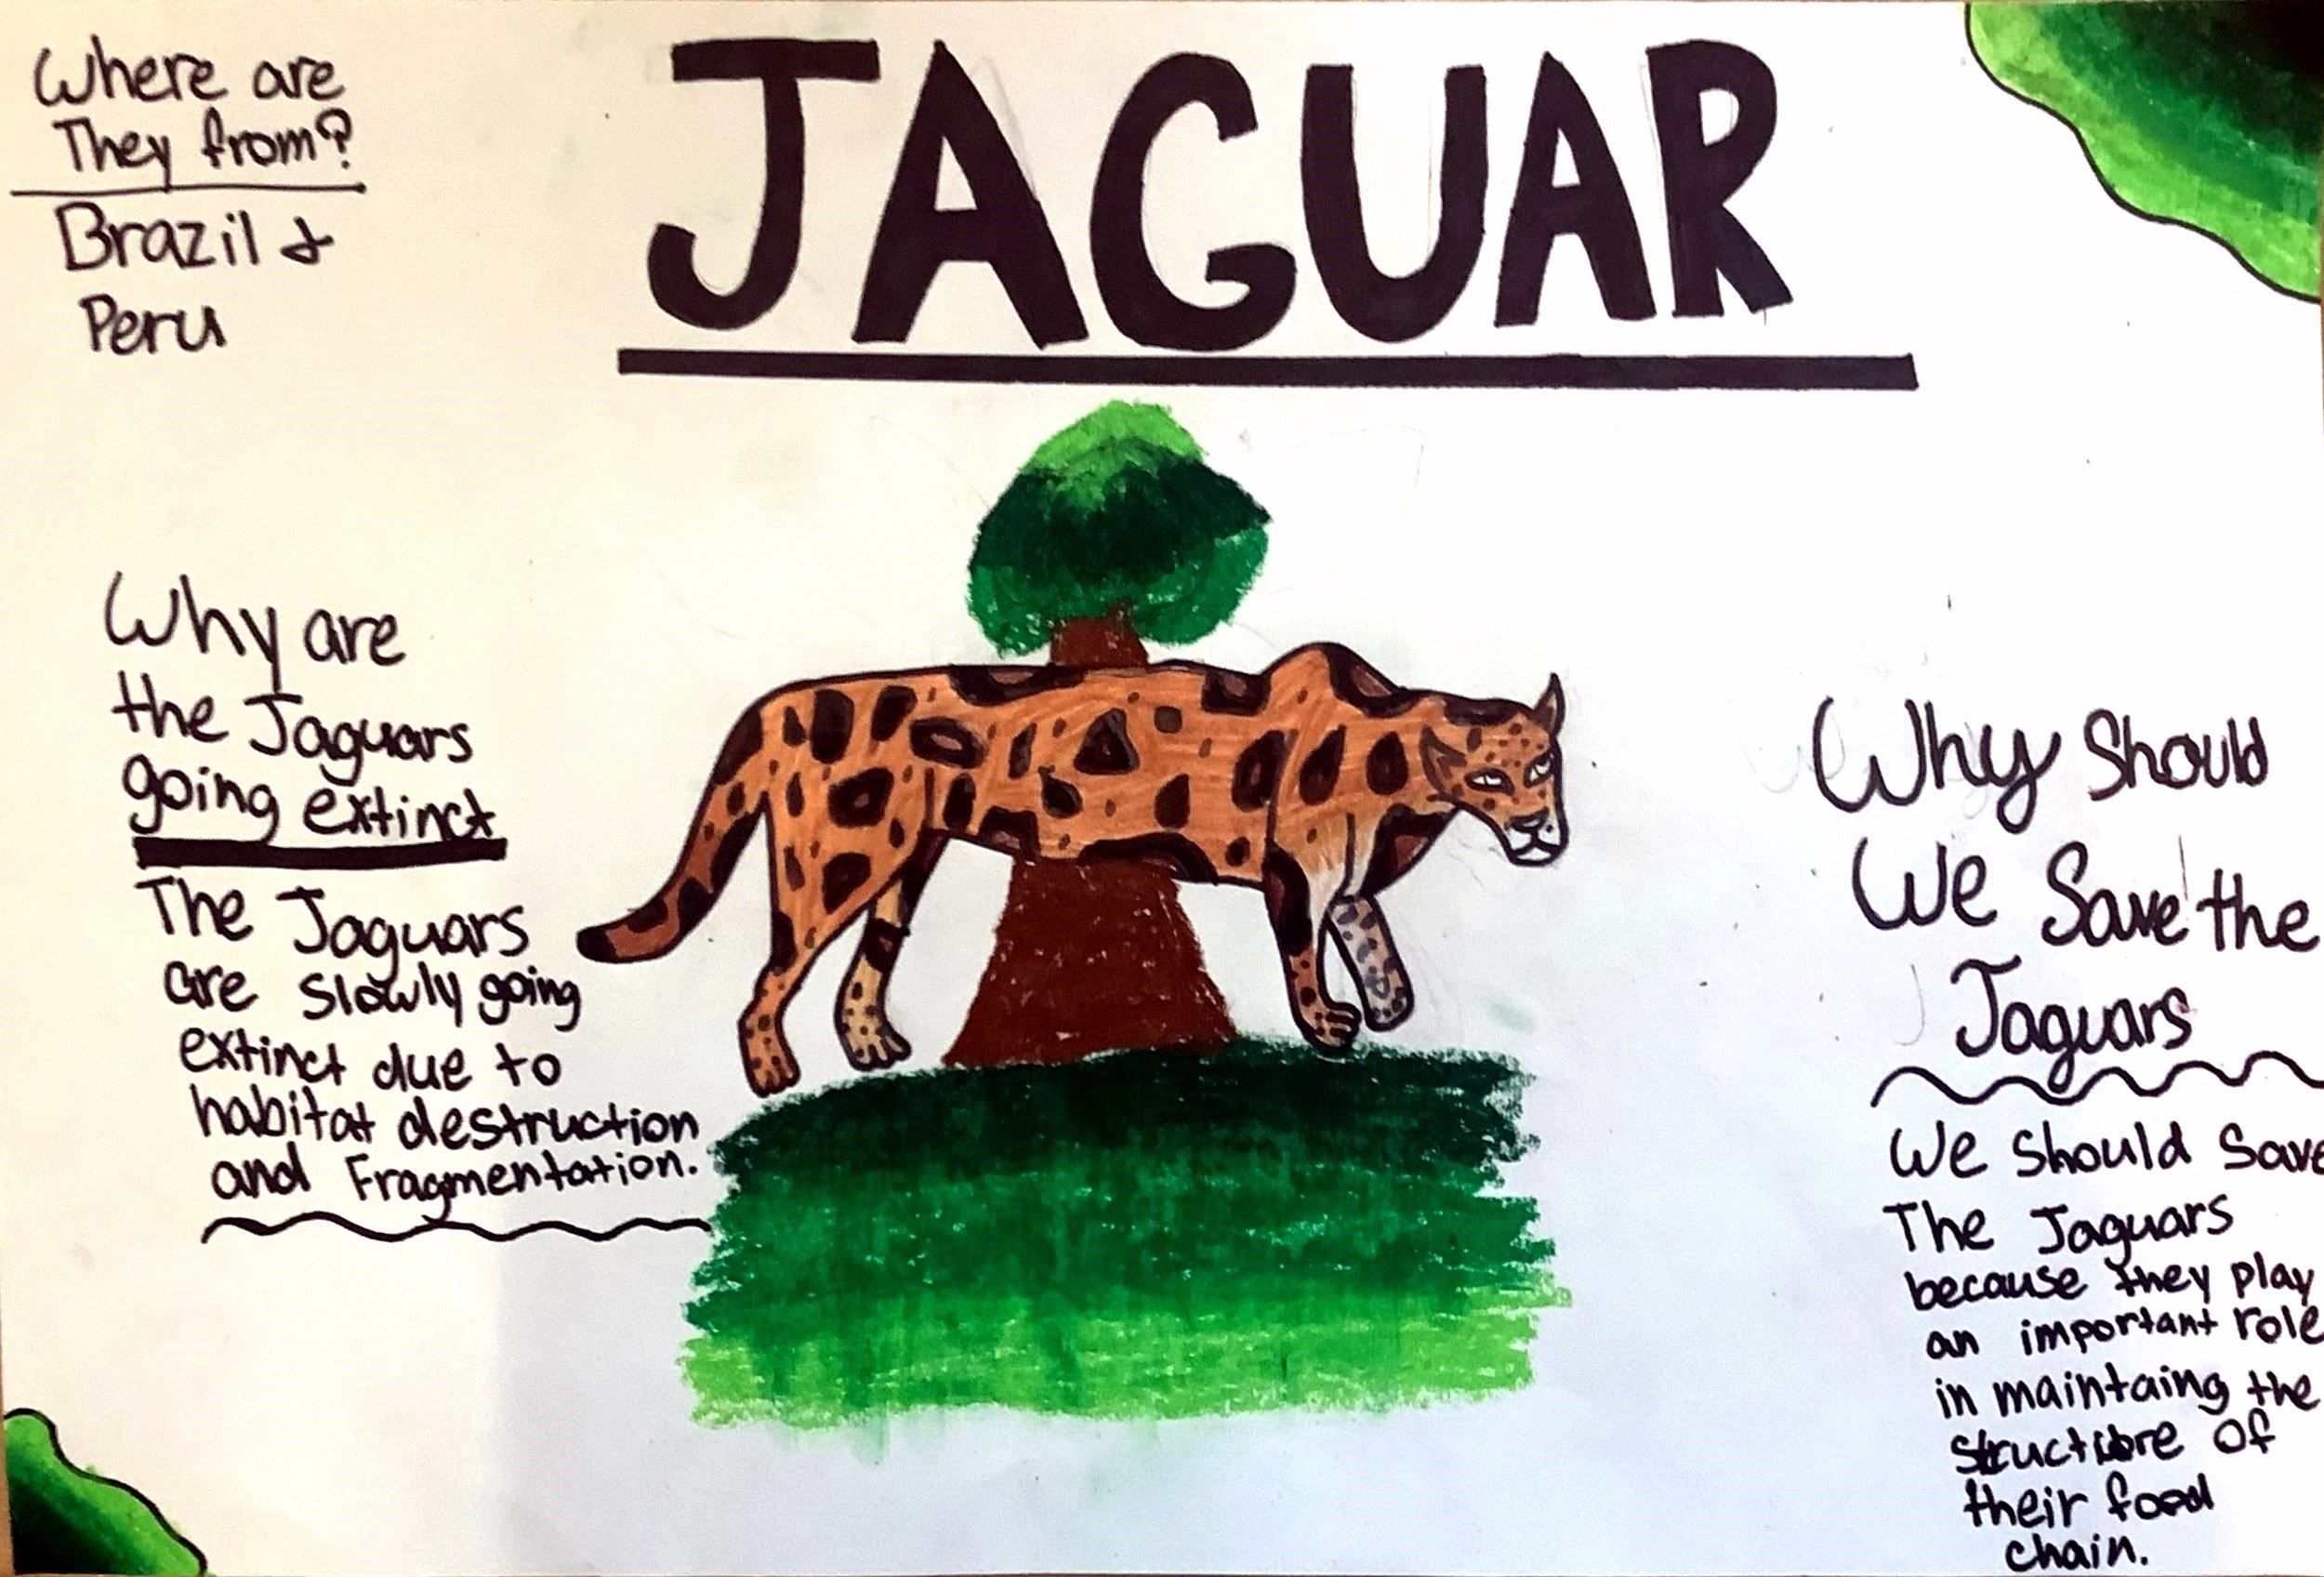 JAGUAR
Where are
They from?
Brazil &
Peru
Why are
the Jaguars
going extinct
The Jaguars
are slowly going
extinct due to
habitat destruction
and Fragmentation.
Why Should
We Save the
Jaguars
We should save
The Jaguars
because they play
an important role
in maintaing the
structure of
their food
chain.